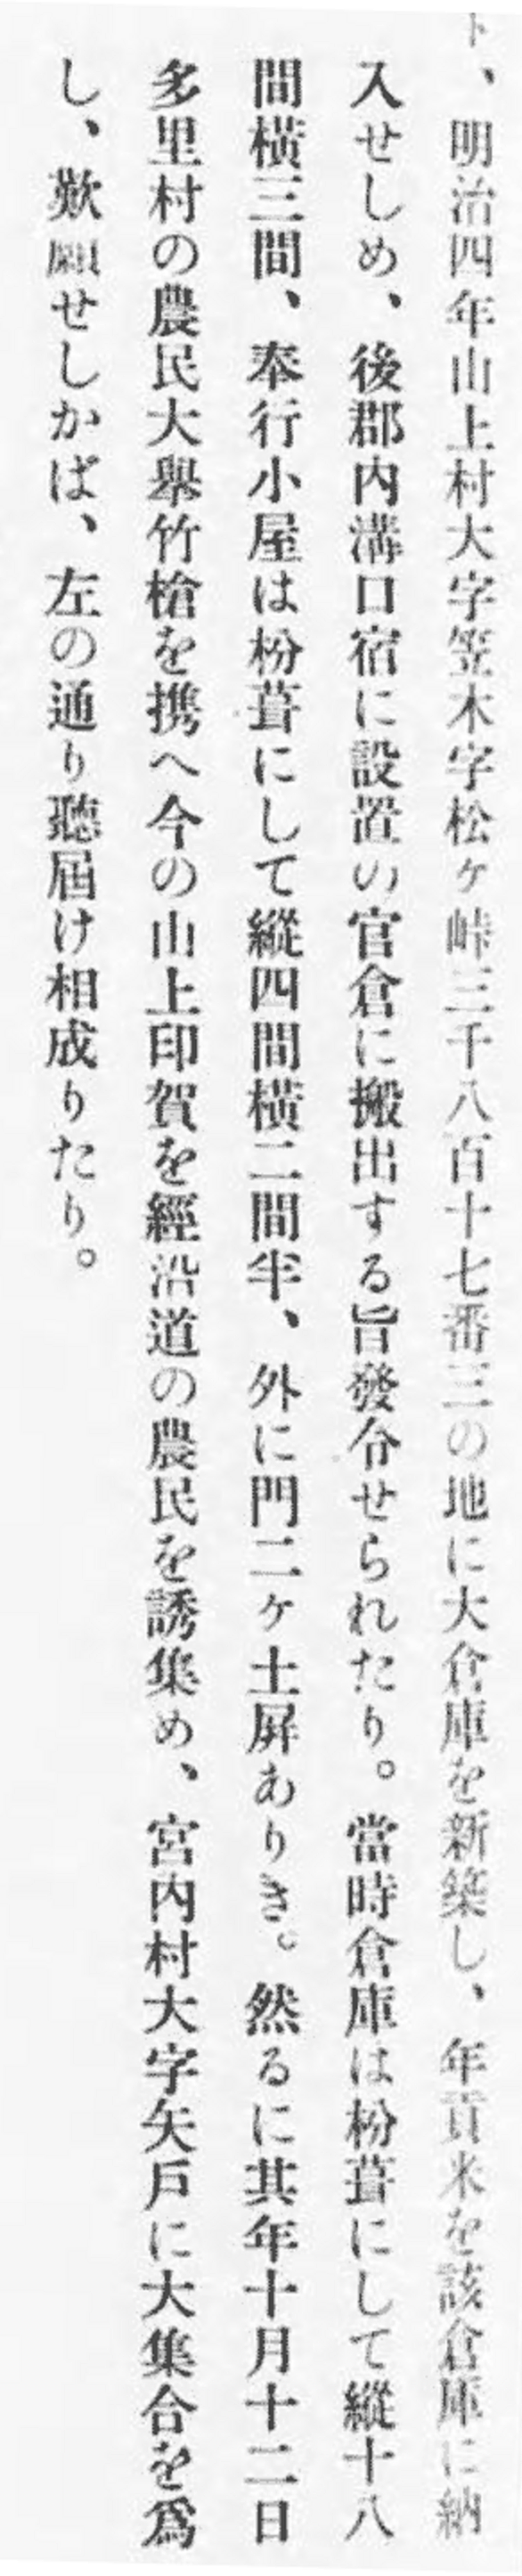 ト、明治四年山上村大字笠木字松ヶ峠三千八百十七番三の地に大倉庫を新築し、年貢米を該倉庫に納
入せしめ、後郡内溝口宿に設置の官倉に搬出する旨發令せられたり。當時倉庫は枌葺にして縱十八
間橫三間、奉行小屋は枌葺にして縱四間橫二間半、外に門二ヶ土屛ありき。然るに其年十月十二日
多里村の農民大擧竹槍を携へ今の山上印賀を經沿道の農民を誘集め、宮內村大字矢戶に大集合を爲
し、歎願せしかば、左の通り聽屆け相成りたり。